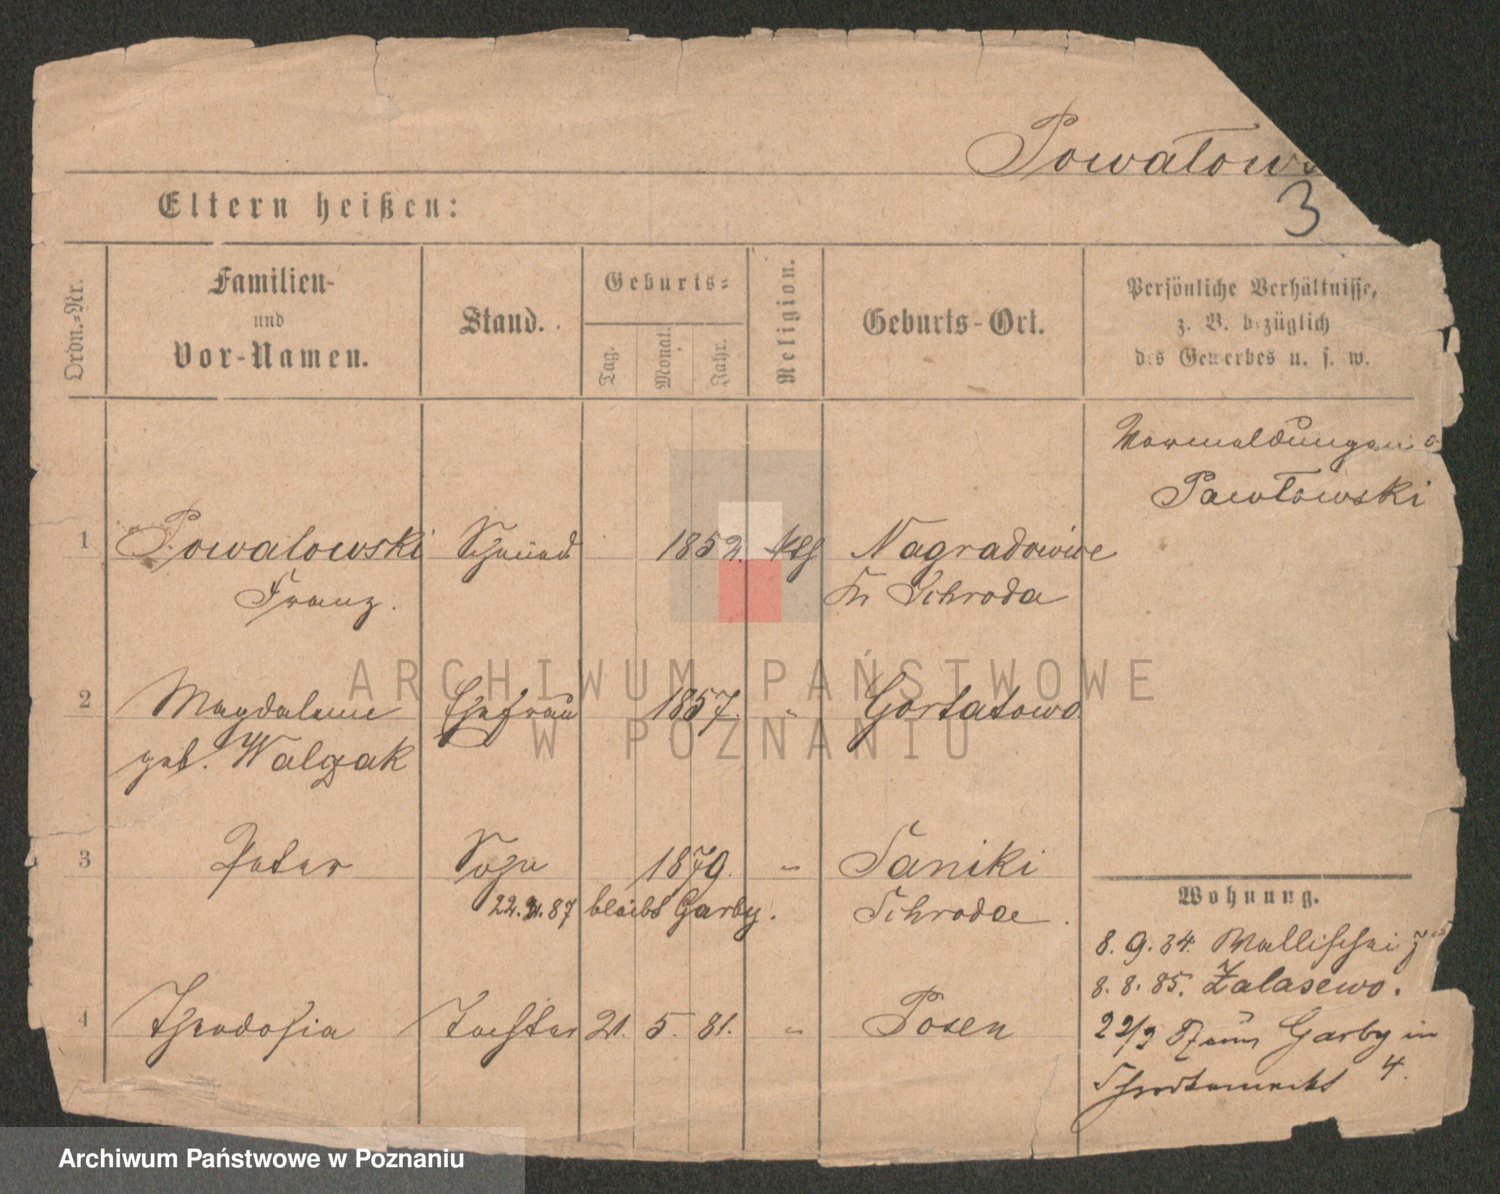 Powałows
3
Eltern heißen:
Ordn.-Nr.
Familien-
und
Vor-Namen.
Stand.
Geburts-
Tag.
Monat.
Jahr.
Religion.
Geburts-Ort.
Persönliche Verhältnisse,
z. B. bezüglich
des Gewerbes u. s. w.
Pawłowski
1 Powalowski Schmied 1852. ktl Nagradowice
Franz. Kr Schroda
2 Magdalene Ehefrau 1857. " Gortatowo
geb. Walczak
3 Peter Sohn 1879. " Taniki
22. 2. 87 bleibt Garby. Schrodae.
Wohnung.
8. 9. 84. Wallischei
8. 8. 85. Zalasewo.
4 Theodosia Tochter 21. 5. 81. " Posen
22/2 87 Garby in
4.
ARCHIWUM PAŃSTWOWE
W POZNANIU
Archiwum Państwowe w Poznaniu